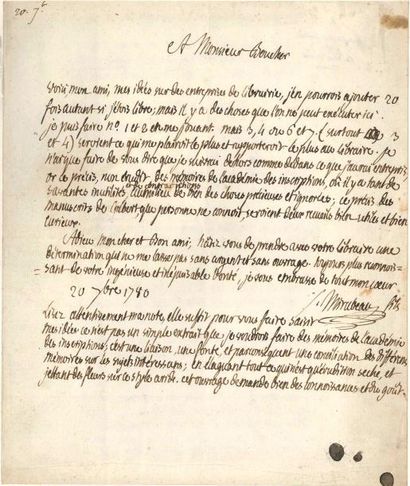 20. 7.bre
A Monsieur Boucher
voici mon ami, mes idées sur des entreprises de librairie, j'en pourrois ajouter 20
fois autant si j'étois libre; mais il y a des choses que l'on ne peut exécuter ici.
je puis faire n.° 1 et 2 en me jouant mais 3, 4 ou 6 et 7 (surtout 3
et 4) seroient ce qui me plairoit le plus et rapporteroit le plus au libraire. je
n'ai que faire de vous dire que je suis ici dehors comme dedans ce que j'aurai entrepris,
or ce précis, non des mémoires de l'académie des inscriptions, où il y a tant de
savantes inutilités et de contradictions au milieu de bien des choses précieuses et ignorées; ce précis des
manuscrits de Colbert que personne ne connoit seroient deux recueils bien utiles et bien
curieux.
Adieu mon cher et bon ami, hâtez vous de prendre avec votre libraire une
détermination qui ne me laisse pas sans argent et sans ouvrage. toujours plus reconnois-
sant de votre ingénieuse et inépuisable bonté, je vous embrasse de tout mon coeur.
20 7bre 1780
Mirabeau fils
lisez attentivement ma note, elle suffit pour vous faire saisir
mes idées ce n'est pas un simple extrait que je voudrois faire des mémoires de l'académie
des inscriptions; c'est une liaison, une fonte, et par conséquent une conciliation des différens
mémoires sur les sujets intéressans; en élaguant tout ce qui n'est qu'érudition sèche, et
jettant des fleurs sur ce style aride. cet ouvrage demande bien des connoissances et du goût.